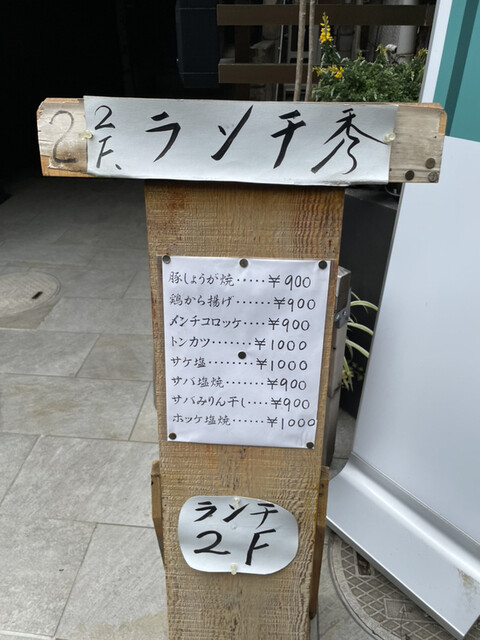 2
2F. ランチ秀
豚しょうが焼・・・・・¥900
鶏から揚げ・・・・・・¥900
メンチコロッケ・・・・¥900
トンカツ・・・・・・・¥1000
サケ塩・・・・・・・・¥1000
サバ塩焼・・・・・・・¥900
サバみりん干し・・・・¥900
ホッケ塩焼・・・・・・¥1000
ランチ
2F